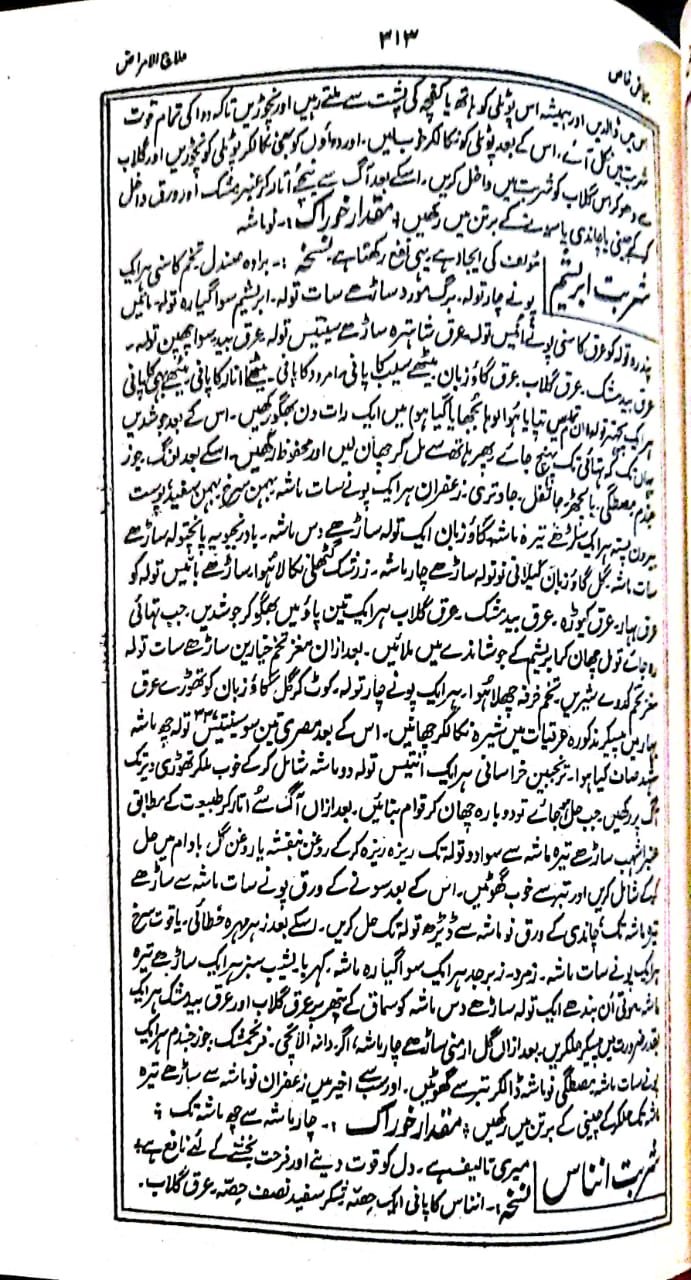 ۳۱۳
علاج الامراض
بیاض خاص
اس میں ڈالدیں اور ہمیشہ اس پوٹلی کو ہاتھ یا کفچہ کی پشت سے ملتے رہیں اور نچوڑیں تاکہ دوا کی تمام قوت
شربت میں نکل آئے۔ اس کے بعد پوٹلی کو نکالکر خوب ملیں۔ اور دواؤں کو بھی نکالکر پوٹلی کو نچوڑیں اور گلاب
سے دھوکر اس گلاب کو شربت میں داخل کریں۔ اسکے بعد آگ سے نیچے اُتار کر عنبر، مشک اور ورق داخل
کرکے چینی یا چاندی یا سونے کے برتن میں رکھیں؛ مقدار خوراک :۔ نوماشہ
شربت ابریشم
مؤلف کی ایجاد ہے یہی نفع رکھتا ہے نسخہ :۔ برادہ صندل۔ تخم کاسنی ہر ایک
پونے چار تولہ۔ برگ مورد ساڑھے سات تولہ۔ ابریشم سوا گیارہ تولہ۔ مائیں
پندرہ تولہ کو عرق کاسنی پونے اُنیس تولہ، عرق شاہترہ ساڑھے سینتیس تولہ، عرق بید سوا چھپن تولہ۔
عرق بیدمشک۔ عرق گلاب۔ عرق گاؤزبان۔ میٹھے سیب کا پانی۔ امرود کا پانی۔ میٹھے انار کا پانی۔ میٹھے بہی کا پانی
ہر ایک پچھتر تولہ (ان میں تپایا ہوا لوہا بجھایا گیا ہو) میں ایک رات دن بھگو رکھیں۔ اس کے بعد جوشدیں
یہاں تک کہ تہائی تک پہنچ جائے پھر ہاتھ سے مل کر چھان لیں اور محفوظ رکھیں۔ اسکے بعد لونگ۔ جوز
جندم۔ مصطگی۔ بالچھڑ۔ جائفل۔ جاوتری۔ زعفران ہر ایک پونے سات ماشہ بہمن سرخ۔ بہمن سفید۔ پوست
بیرون پستہ ہر ایک ساڑھے تیرہ ماشہ، گاؤزبان ایک تولہ ساڑھے دس ماشہ۔ بادرنجبویہ پانچ تولہ ساڑھے
سات ماشہ۔ گل گاؤزبان گیلانی نو تولہ ساڑھے چار ماشہ۔ زرشک گٹھلی نکالا ہوا ساڑھے بائیس تولہ کو
عرق بہار۔ عرق کیوڑہ۔ عرق بیدمشک۔ عرق گلاب ہر ایک تین پاؤ میں بھگو کر جوشدیں۔ جب تہائی
رہ جائے تو مل چھان کر ابریشم کے جوشاندے میں ملائیں۔ بعدازاں مغز تخم خیارین ساڑھے سات تولہ
مغز تخم کدوے شیریں۔ تخم خرفہ چھلا ہوا۔ ہر ایک پونے چار تولہ۔ کوٹ کر گل گاؤزبان کو تھوڑے عرق
بہار میں پیسکر مذکورہ عرقیات میں شیرہ نکالکر چھانیں۔ اس کے بعد مصری تین سو سینتیس ۳۳۷ تولہ چھ ماشہ
شہد صاف کیا ہوا۔ ترنجبین خراسانی ہر ایک اُنتیس تولہ دو ماشہ شامل کرکے خوب ملکر تھوڑی دیر تک
آگ پر رکھیں جب حل ہو جائے تو دوبارہ چھان کر قوام بنائیں۔ بعدازاں آگ سے اُتار کر طبیعت کے مطابق
عنبر اشہب ساڑھے تیرہ ماشہ سے سوا دو تولہ تک ریزہ ریزہ کرکے روغن بنفشہ یا روغن گل بادام میں حل
کرکے شامل کریں اور تبر سے خوب گھوٹیں۔ اس کے بعد سونے کے ورق پونے سات ماشہ سے ساڑھے
تیرہ ماشہ تک، چاندی کے ورق نو ماشہ سے ڈیڑھ تولہ تک حل کریں۔ اسکے بعد زہرمہرہ خطائی۔ یاقوت سرخ
ہر ایک پونے سات ماشہ۔ زمرد۔ زبرجد ہر ایک سوا گیارہ ماشہ۔ کہربا۔ یشب سبز ہر ایک ساڑھے تیرہ
ماشہ۔ موتی اَن بندھے ایک تولہ ساڑھے دس ماشہ کو سماق کے پتھر پر عرق گلاب اور عرق بیدمشک ہر ایک
بقدر ضرورت میں پیسکر حلکریں۔ بعدازاں گل ارمنی ساڑھے چار ماشہ، اگر۔ دانہ الائچی۔ فرنجمشک۔ جوز جندم ہر ایک
پونے سات ماشہ، مصطگی نو ماشہ ڈالکر تبر سے گھوٹیں۔ اور سب سے اخیر میں زعفران نو ماشہ سے ساڑھے تیرہ
ماشہ تک حلکرکے چینی کے برتن میں رکھیں؛ مقدار خوراک :۔ چار ماشہ سے چھ ماشہ تک ؛
شربت انناس
میری تالیف ہے۔ دل کو قوت دینے اور فرحت بخشنے کے لئے نافع ہے؛
نسخہ :۔ انناس کا پانی ایک حصّہ نیشکر سفید نصف حصّہ۔ عرق گلاب۔